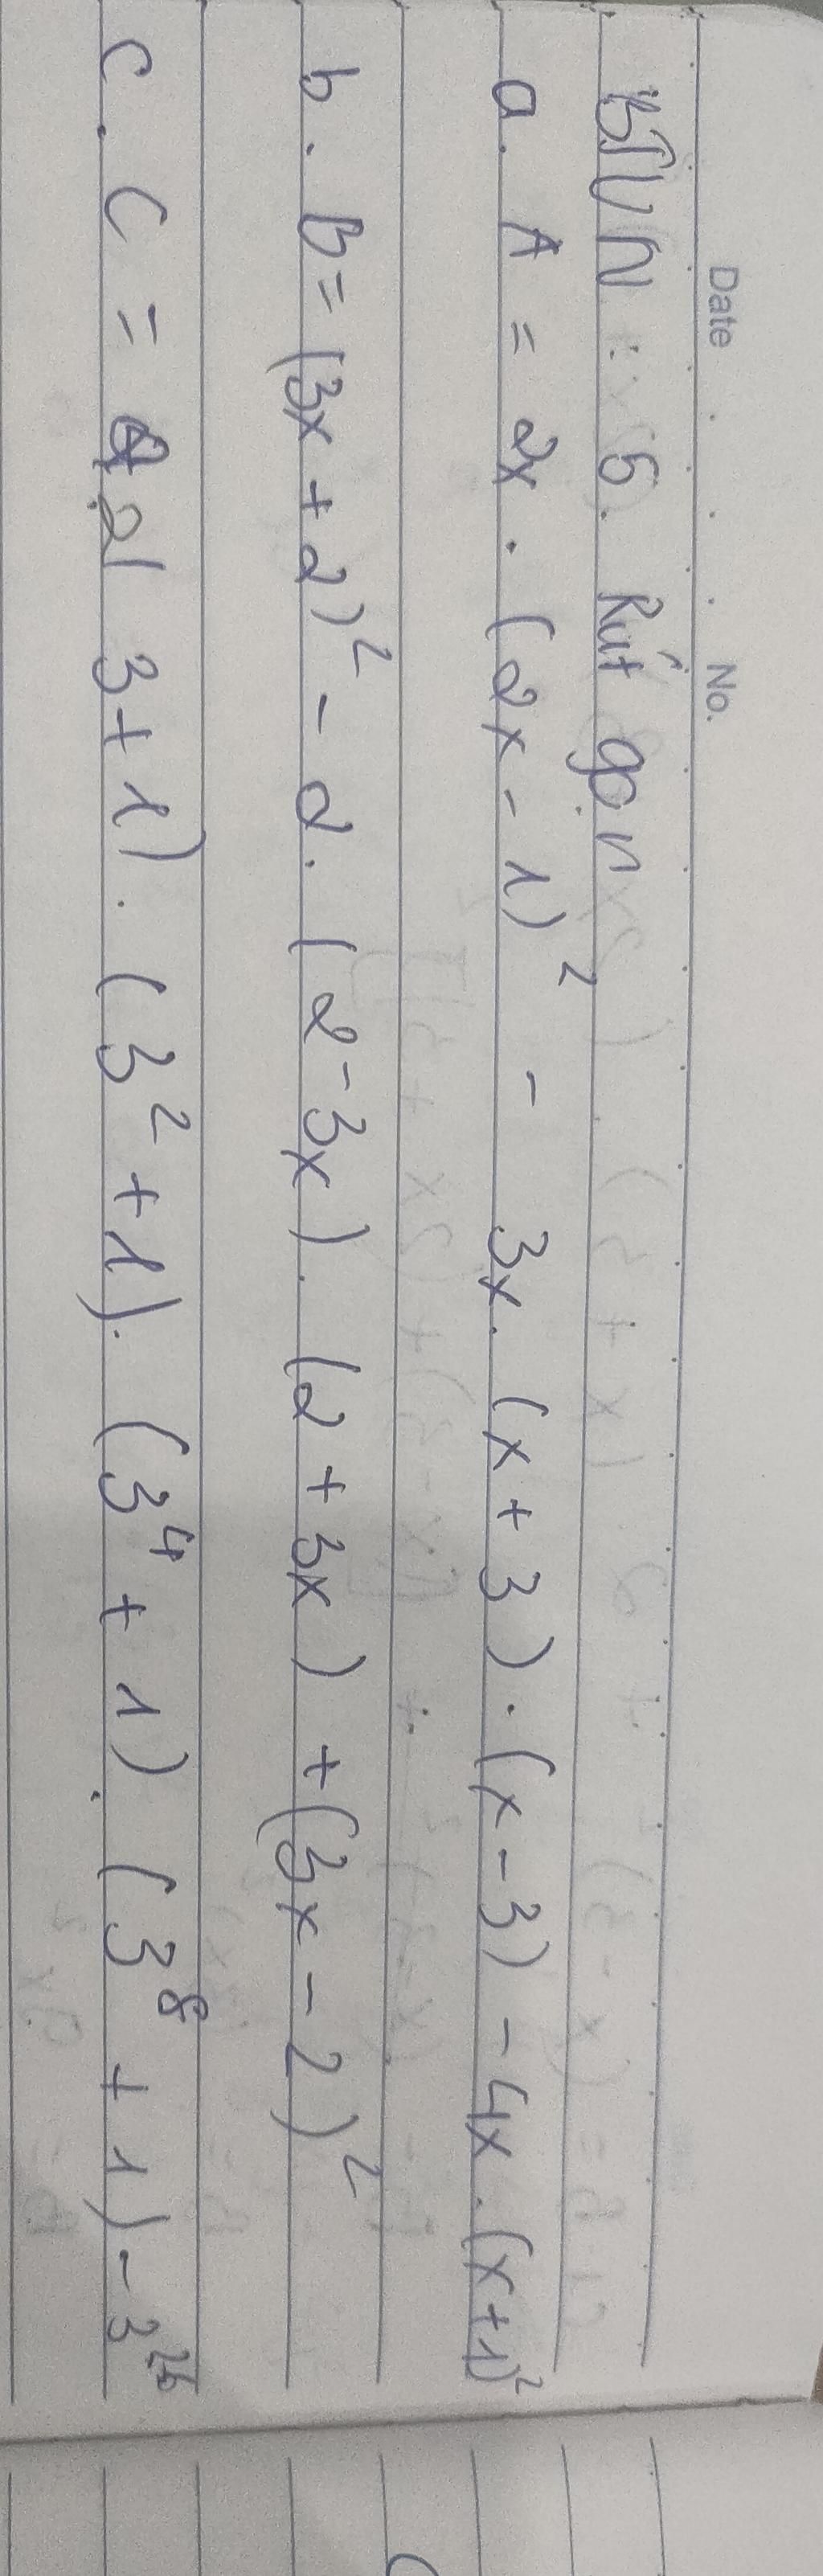 Date . . . No.
BTVN 6. Rút gọn
a. A = 2x . (2x - 1)² - 3x. (x + 3) . (x - 3) - 4x . (x+1)²
b. B = (3x + 2)² - 2. (2 - 3x). (2 + 3x) + (3x - 2)²
c. C = 2( 3 + 1) . (3² + 1). (3⁴ + 1) . (3⁸ + 1) - 3